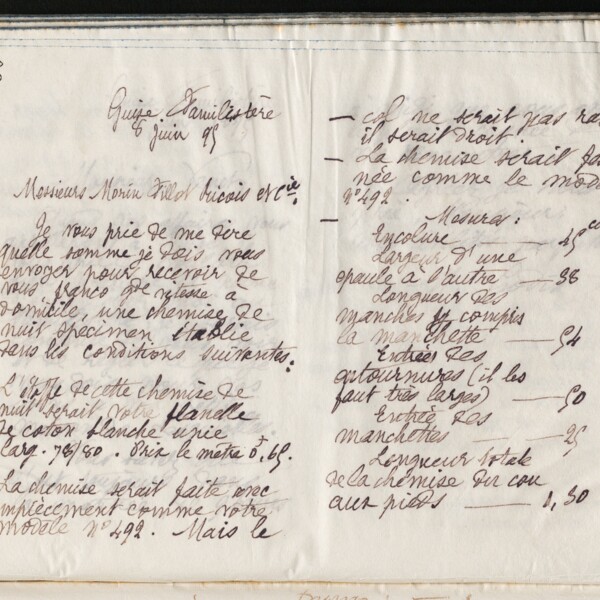 Guise Familistère
8 juin 95
Messieurs Morin Fillot Ricois et Cie.
Je vous prie de me dire
quelle somme je dois vous
envoyer pour recevoir de
vous franco gde vitesse à
domicile, une chemise de
nuit spécimen établie
dans les conditions suivantes :
L'étoffe de cette chemise de
nuit serait votre flanelle
de coton blanche unie
larg. 78/80. Prix le mètre 0f,65.
La chemise serait faite avec
empiècement comme votre
modèle N° 492. Mais le
— col ne serait pas
il serait droit.
— La chemise serait
née comme le
N° 492.
— Mesures :
Encolure — 45
Largeur d'une
épaule à l'autre — 38
Longueur des
manches y compris
la manchette — 54
Entrée des
entournures (il les
faut très larges) — 50
Entrée des
manchettes — 25
Longueur totale
de la chemise du cou
aux pieds — 1,30